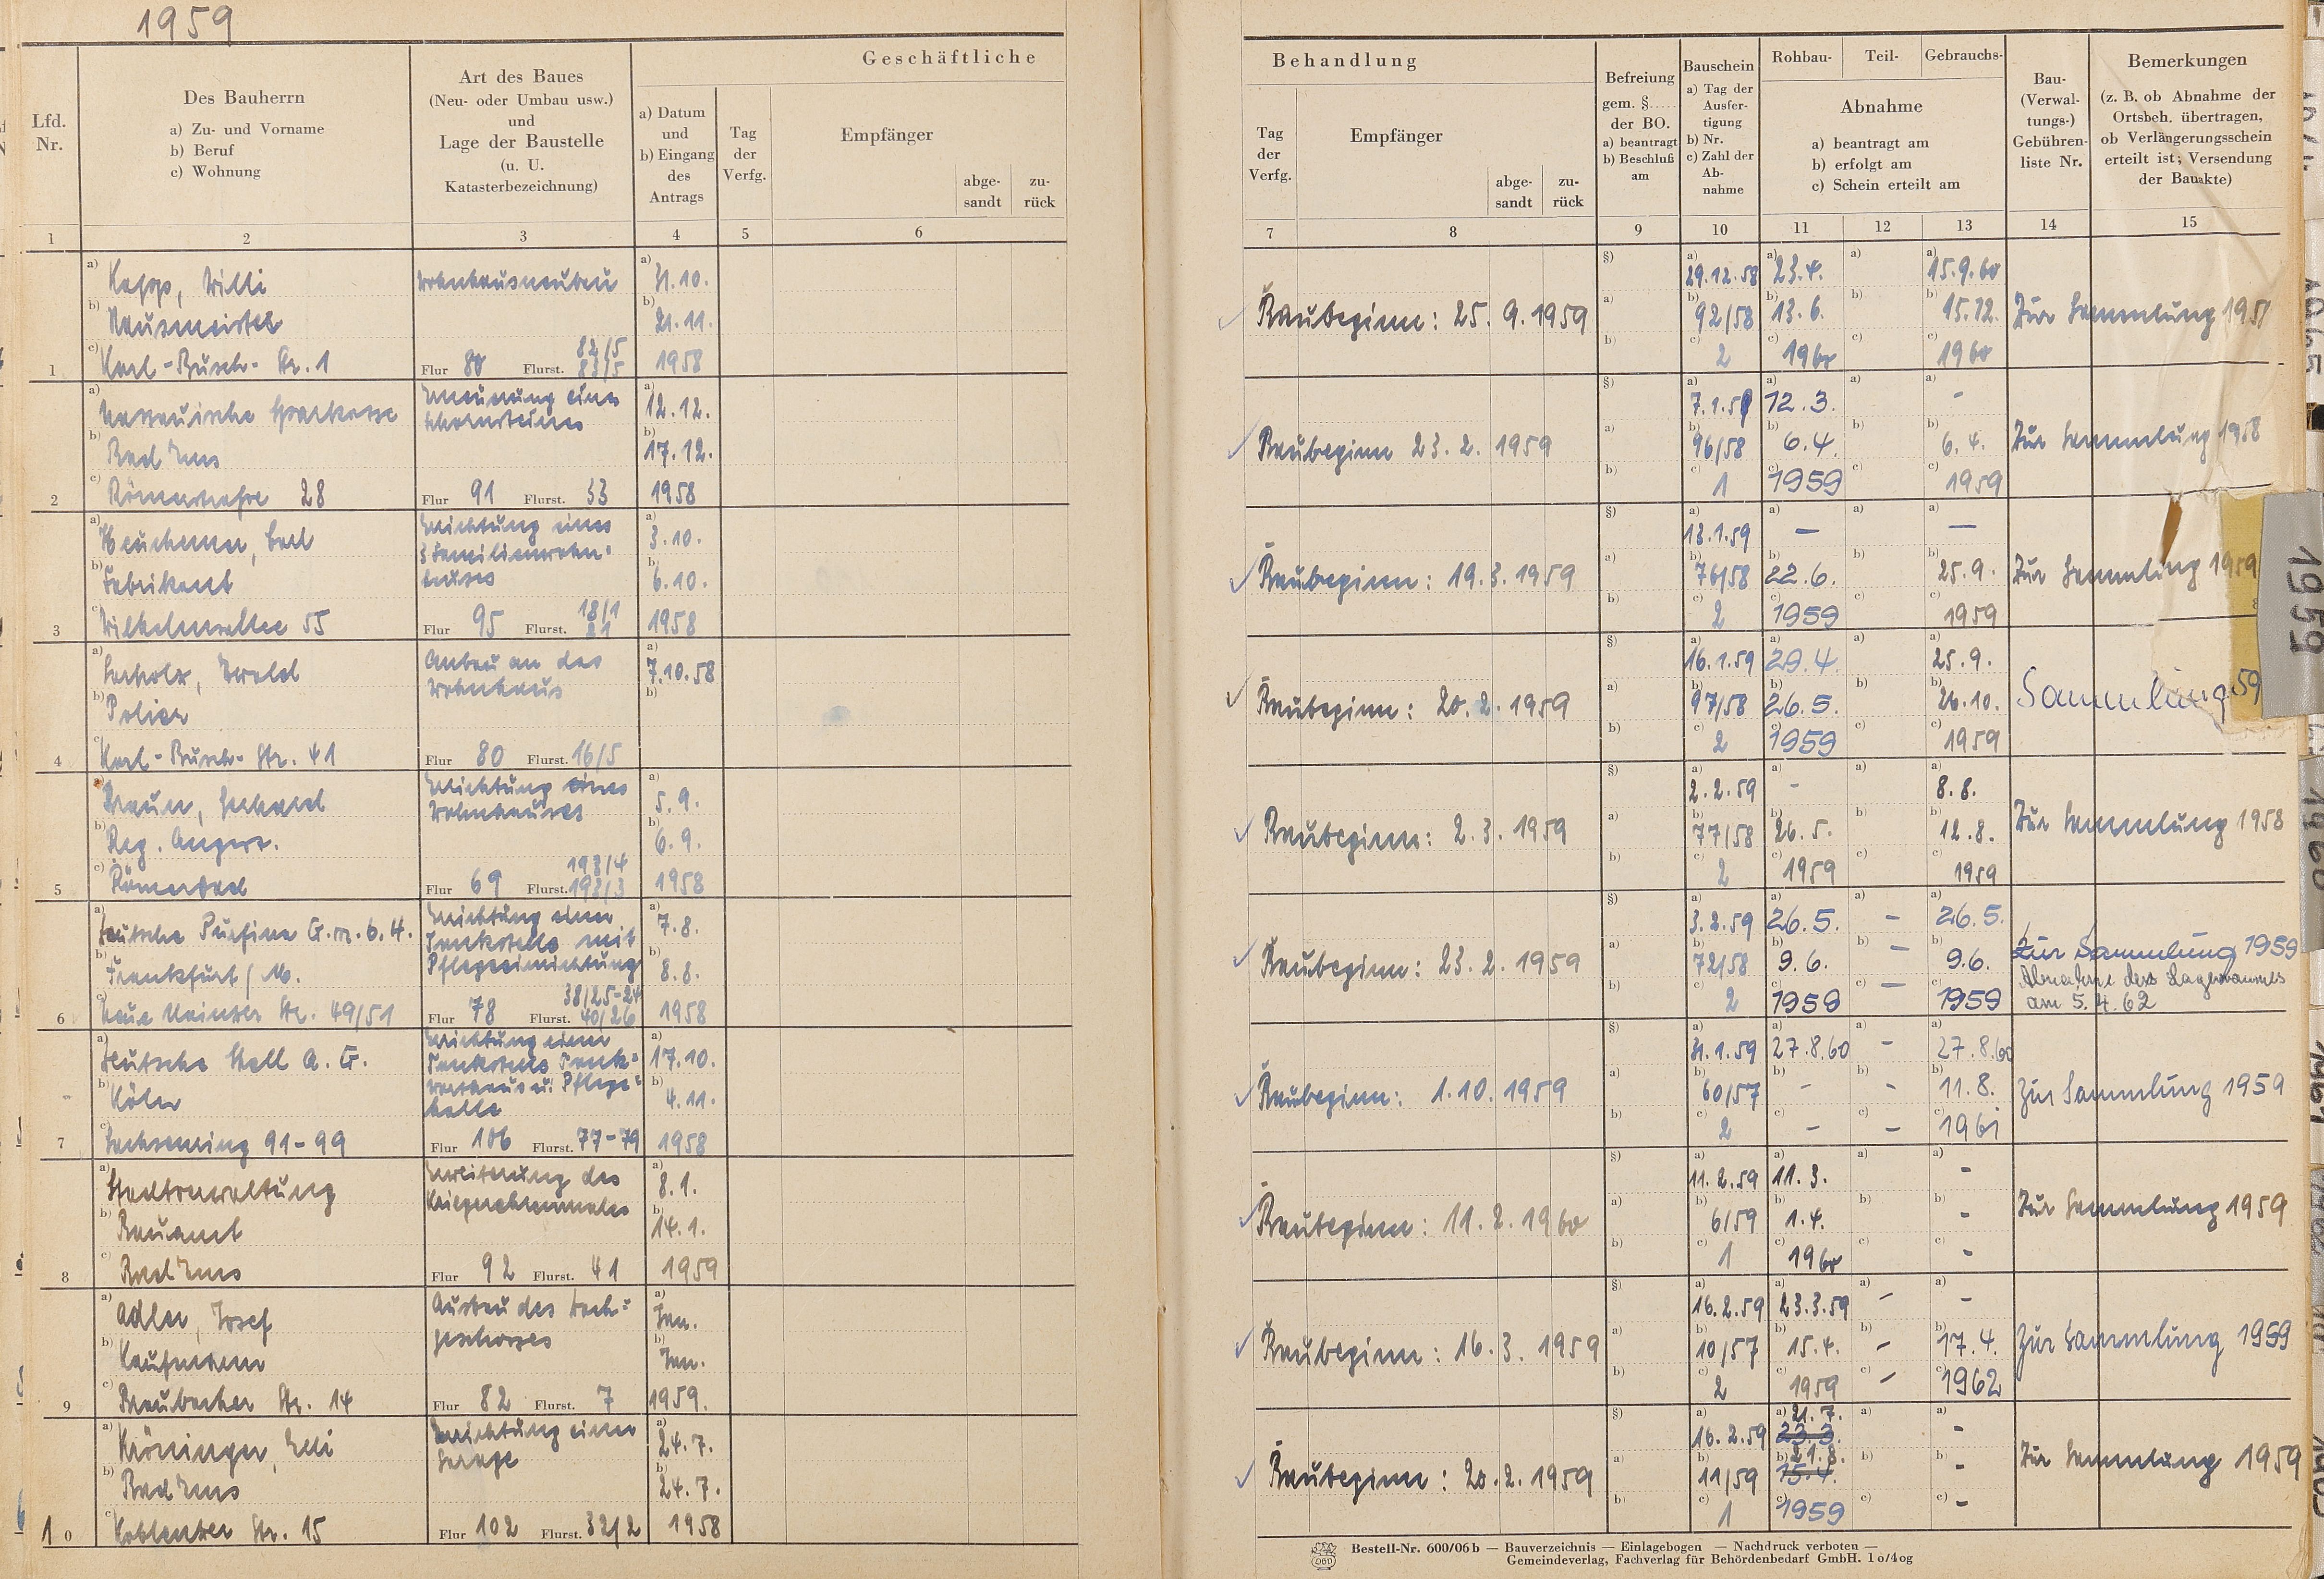 1959
Geschäftliche
Lfd.
Nr.
Des Bauherrn
a) Zu- und Vorname
b) Beruf
c) Wohnung
Art des Baues
(Neu- oder Umbau usw.)
und
Lage der Baustelle
(u. U.
Katasterbezeichnung)
a) Datum
und
b) Eingang
des
Antrags
Tag
der
Verfg.
Empfänger
abge-
sandt
zu-
rück
1 2 3 4 5 6
a) Willi Wohnhausneubau a) 31.10.
b) Hausmeister b) 21.11.
82/5
1 c) Karl-Busch-Str. 1 Flur 80 Flurst. 83/5 1958
a) Nassauische Sparkasse Erneuerung eines a) 12.12.
Schornsteines
b) Bad Ems b) 17.12.
2 c) Römerstraße 28 Flur 91 Flurst. 33 1958
a) Carl Errichtung eines a) 3.10.
3 Familienwohn-
b) Fabrikant hauses b) 6.10.
18/1
3 c) Wilhelmsallee 55 Flur 95 Flurst. 21 1958
a) Ewald Anbau an das a) 7.10.58
Wohnhaus b)
b) Polier
4 c) Karl-Busch-Str. 41 Flur 80 Flurst. 16/5
a) Braun, Gerhard Errichtung eines a) 5.9.
Wohnhauses
b) Reg. Angest. b) 6.9.
193/4
5 c) Römerbad Flur 69 Flurst. 193/3 1958
a) Deutsche Purfina G.m.b.H. Errichtung einer a) 7.8.
Tankstelle mit
b) Frankfurt/M. Pflegeeinrichtung b) 8.8.
38/25-24
6 c) Neue Mainzer Str. 49/51 Flur 78 Flurst. 40/26 1958
a) Deutsche Shell A.G. Errichtung einer a) 17.10.
Tankstelle Tank-
b) Köln warthaus u. Pflege- b) 4.11.
halle
7 c) Sachsenring 91-99 Flur 106 Flurst. 77-79 1958
a) Stadtverwaltung Erweiterung des a) 8.1.
Kriegerehrenmales
b) Bauamt b) 14.1.
8 c) Bad Ems Flur 92 Flurst. 41 1959
a) Adler, Josef Ausbau des Dach- a) Jan.
geschosses
b) Kaufmann b) Jan.
9 c) Braubacher Str. 14 Flur 82 Flurst. 7 1959.
a) Kröninger, Elli Errichtung einer a) 24.7.
Garage
b) Bad Ems b) 24.7.
10 c) Koblenzer Str. 15 Flur 102 Flurst. 32/2 1958
Behandlung
Tag
der
Verfg.
Empfänger
abge-
sandt
zu-
rück
Befreiung
gem. §
der BO.
a) beantragt
b) Beschluß
am
Bauschein
a) Tag der
Ausfer-
tigung
b) Nr.
c) Zahl der
Ab-
nahme
Rohbau- Teil- Gebrauchs-
Abnahme
a) beantragt am
b) erfolgt am
c) Schein erteilt am
Bau-
(Verwal-
tungs-)
Gebühren-
liste Nr.
Bemerkungen
(z. B. ob Abnahme der
Ortsbeh. übertragen,
ob Verlängerungsschein
erteilt ist; Versendung
der Bauakte)
7 8 9 10 11 12 13 14 15
§) a) 29.12.58 a) 23.4. a) a) 15.9.60
Baubeginn: 25.9.1959 a) b) 92/58 b) 13.6. b) b) 15.12. Zur Sammlung
b) c) 2 c) 1960 c) c) 1960
§) a) 7.1.59 a) 12.3. a) a) -
Baubeginn 23.2.1959 a) b) 96/58 b) 6.4. b) b) 6.4. Zur Sammlung 1958
b) c) 1 c) 1959 c) c) 1959
§) a) 13.1.59 a) - a) a) -
Baubeginn: 19.3.1959 a) b) 76/58 b) 22.6. b) b) 25.9. Zur Sammlung 1959
b) c) 2 c) 1959 c) c) 1959
§) a) 16.1.59 a) 29.4. a) a) 25.9.
Baubeginn: 20.2.1959 a) b) 97/58 b) 26.5. b) b) 26.10. Sammlung 59
b) c) 2 c) 1959 c) c) 1959
§) a) 2.2.59 a) - a) a) 8.8.
Baubeginn: 2.3.1959 a) b) 77/58 b) 26.5. b) b) 12.8. Zur Sammlung 1958
b) c) 2 c) 1959 c) c) 1959
§) a) 3.2.59 a) 26.5. a) - a) 26.5.
Baubeginn: 23.2.1959 a) b) 72/58 b) 9.6. b) - b) 9.6. Zur Sammlung 1959
Abnahme des Lagerraumes
b) c) 2 c) 1959 c) - c) 1959 am 5.4.62
§) a) 31.1.59 a) 27.8.60 a) - a) 27.8.60
Baubeginn: 1.10.1959 a) b) 60/57 b) - b) - b) 11.8. Zur Sammlung 1959
b) c) 2 c) - c) - c) 1961
§) a) 11.2.59 a) 11.3. a) a) -
Baubeginn: 11.2.1960 a) b) 6/59 b) 1.4. b) b) - Zur Sammlung 1959
b) c) 1 c) 1960 c) c) -
§) a) 16.2.59 a) 23.3.59 a) - a) -
Baubeginn: 16.3.1959 a) b) 10/57 b) 15.4. b) - b) 17.4. Zur Sammlung 1959
b) c) 2 c) 1959 c) - c) 1962
§) a) 16.2.59 a) 21.7. 23.3. a) a) -
Baubeginn: 20.2.1959 a) b) 11/59 b) 21.8. 15.4. b) b) - Zur Sammlung 1959
b) c) 1 c) 1959 c) c) -
Bestell-Nr. 600/06 b — Bauverzeichnis — Einlagebogen — Nachdruck verboten —
Gemeindeverlag, Fachverlag für Behördenbedarf GmbH. 10/40g
1959